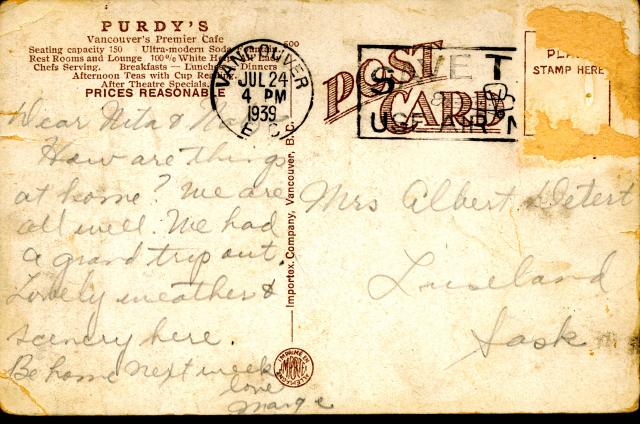 PURDY'S
Vancouver's Premier Cafe
Seating capacity 150 Ultra-modern Soda Fountain,
Rest Rooms and Lounge 100% White Help All Lady
Chefs Serving. Breakfasts — Lunches Dinners
Afternoon Teas with Cup Reading.
After Theatre Specials.
PRICES REASONABLE
VANCOUVER
JUL 24
4 PM
1939
B C
SAVE T
USE AIR M
POST
CARD
PLACE
STAMP HERE
Dear Nita &
How are things
at home? We are
all well. We had
a grand trip out.
Lovely weather &
scenery here.
Be home next week
love
Marge
Importex Company, Vancouver, B. C.
Mrs Albert Detert
Luseland
Sask